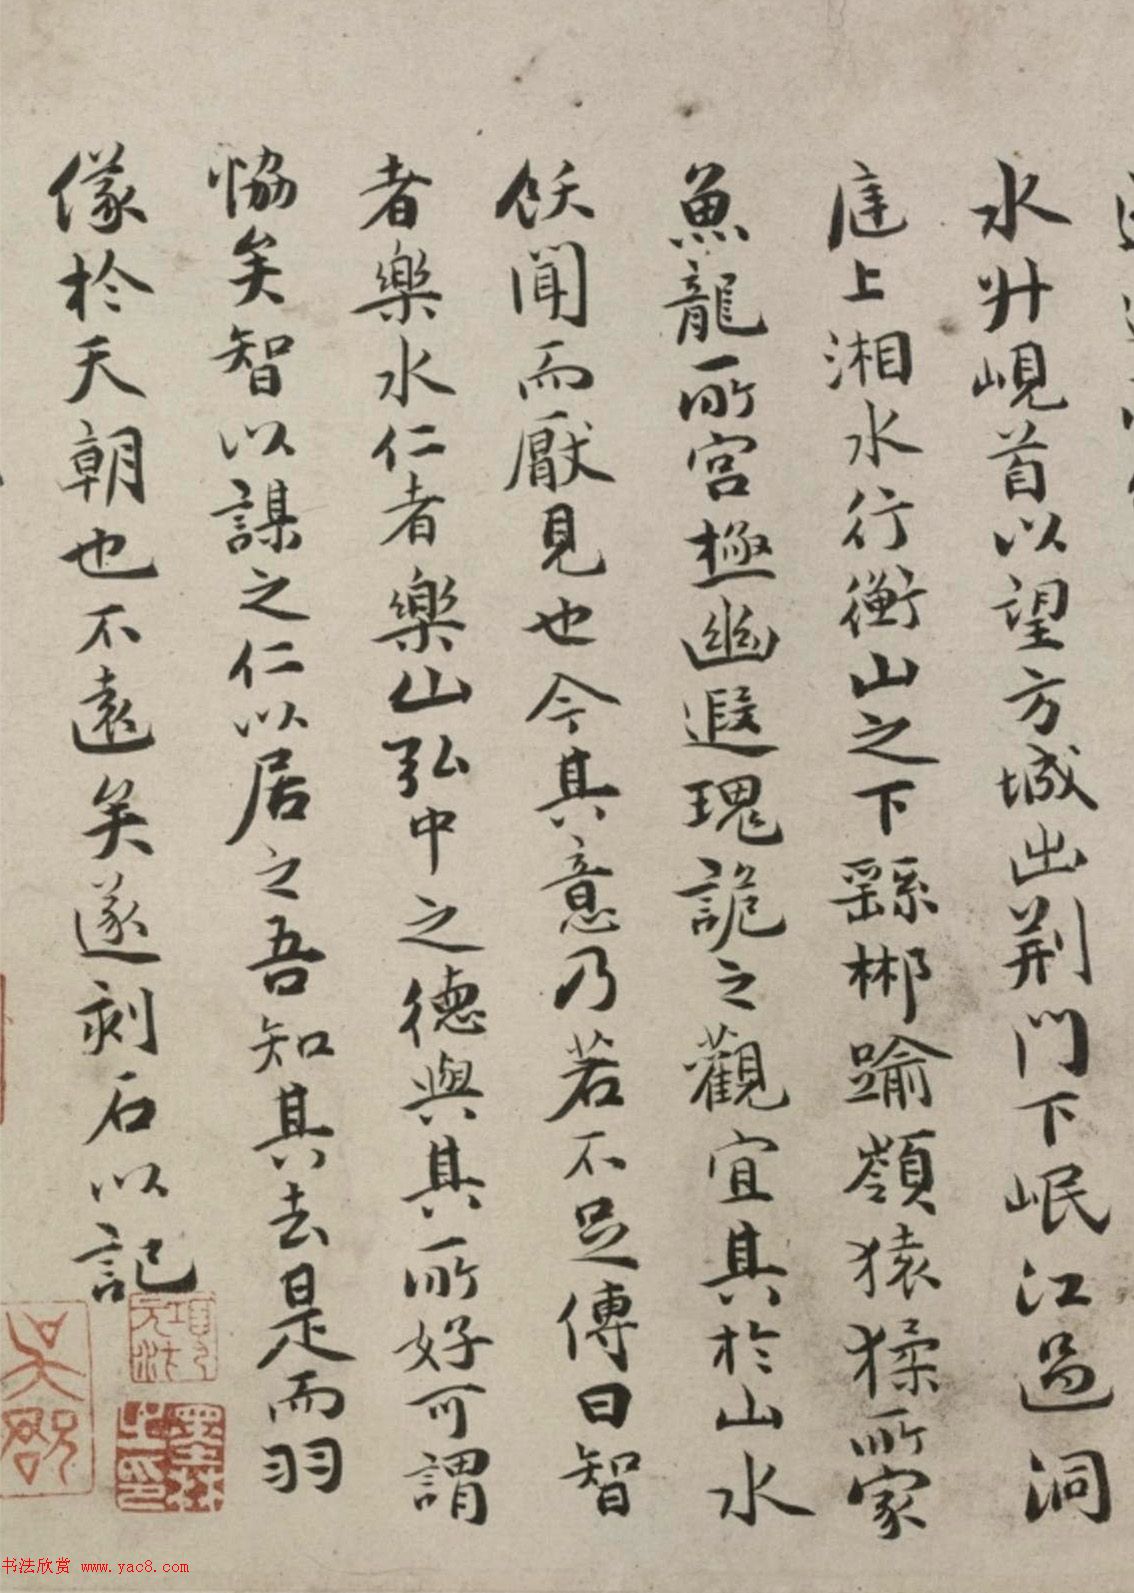 水升峴首以望方城出荆門下岷江過洞
庭上湘水行衡山之下繇郴踰嶺猿猱所家
魚龍所宮極幽遐瑰詭之觀宜其於山水
飫聞而厭見也今其意乃若不足傳曰智
者樂水仁者樂山弘中之德與其所好可謂
恊矣智以謀之仁以居之吾知其去是而羽
儀於天朝也不遠矣遂刻石以記
吳郡
项元汴
墨林
书法欣赏 www.yac8.com